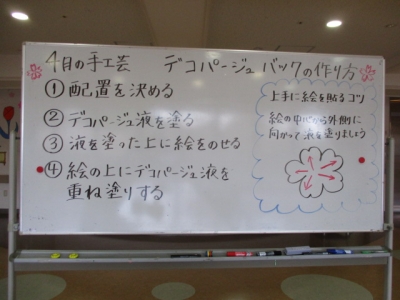 4月の手工芸 デコパージュバックの作り方
①配置を決める
②デコパージュ液を塗る
③液を塗った上に絵をのせる
④絵の上にデコパージュ液を
重ね塗りする
上手に絵を貼るコツ
絵の中心から外側に
向かって液を塗りましょう